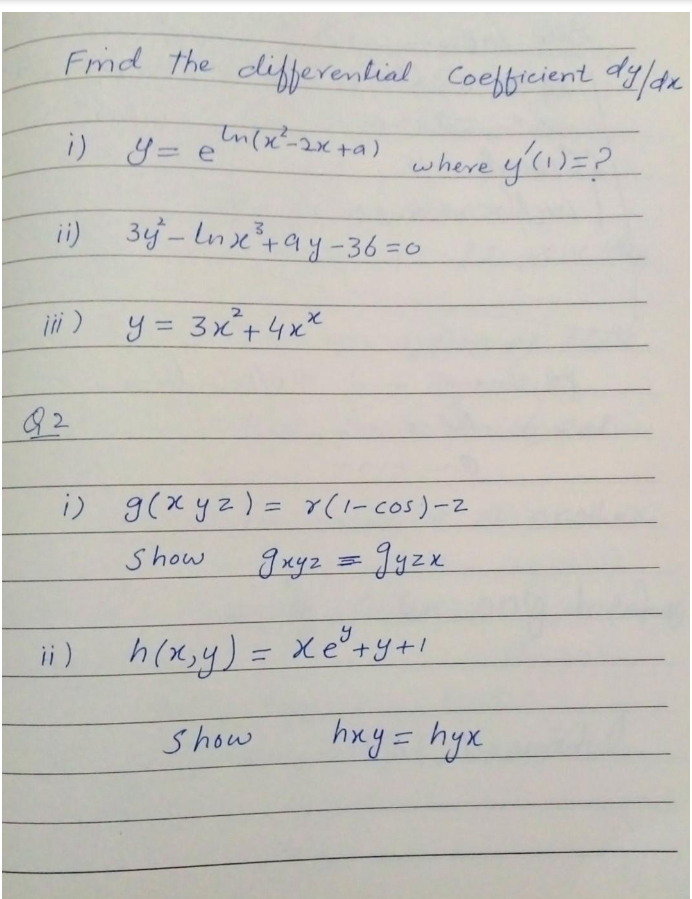 Find the differential coefficient dy/dx
i) y = e^ln(x²-2x+a) where y'(1)=?
ii) 3y² - lnx³ + 9y - 36 = 0
iii) y = 3x² + 4x^x
Q2
i) g(xyz) = r(1-cos)-z
Show gxyz = gyzx
ii) h(x,y) = xe^y + y + 1
Show hxy = hyx